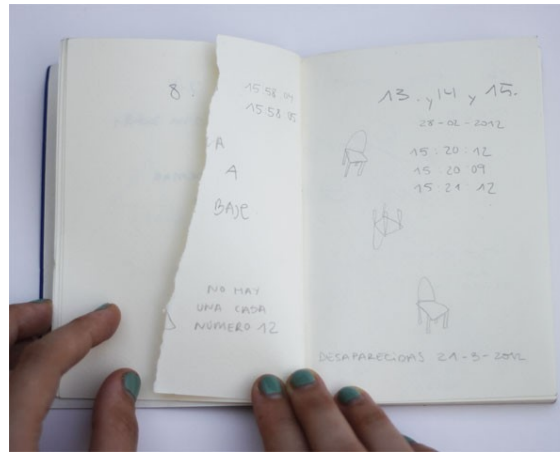 8.
15:58:04
15:58:05
A
A
BAJE
NO HAY
UNA CASA
NÚMERO 12
13. y 14 y 15.
28-02-2012
15:20:12
15:20:09
15:21:12
DESAPARECIDAS 21-3-2012